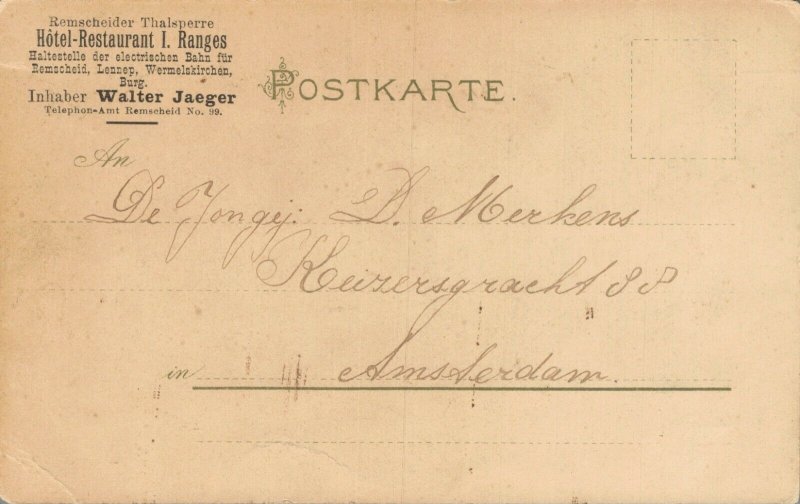 Remscheider Thalsperre
Hôtel-Restaurant I. Ranges
Haltestelle der electrischen Bahn für
Remscheid, Lennep, Wermelskirchen,
Burg.
Inhaber Walter Jaeger
Telephon-Amt Remscheid No. 99.
POSTKARTE.
An
De Jongej: D. Merkens
Keizersgracht 88
in Amsterdam.